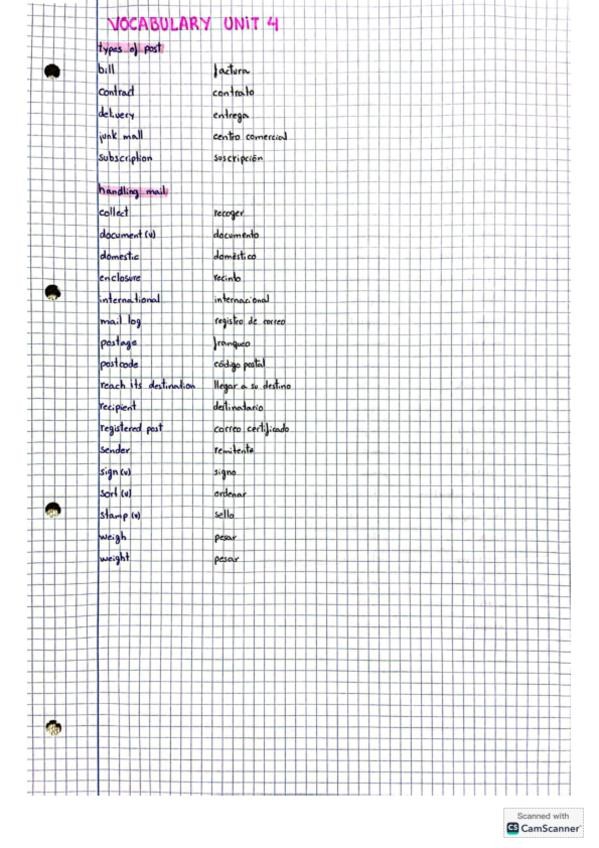 VOCABULARY UNIT 4
types of post
bill factura
contract contrato
delivery entrega
junk mall centro comercial
subscription suscripción
handling mail
collect recoger
document (v) documento
domestic doméstico
enclosure recinto
international internacional
mail log registro de correo
postage franqueo
postcode código postal
reach its destination llegar a su destino
recipient destinatario
registered post correo certificado
sender remitente
sign (v) signo
sort (v) ordenar
stamp (v) sello
weigh pesar
weight pesar
Scanned with
CS CamScanner